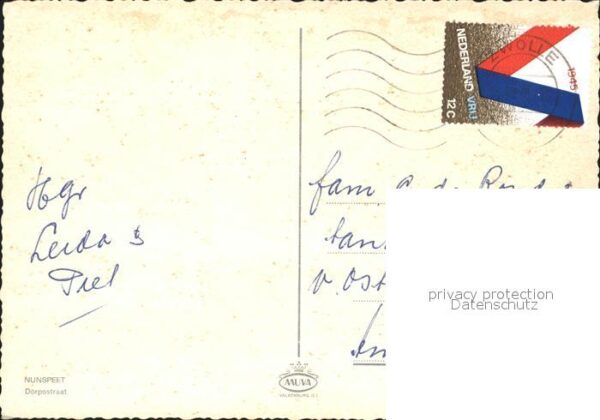 ZWOLLE
NEDERLAND VRIJ
1945
12 C
Hgr
Leida &
Piet
fam
v. Ost
privacy protection
Datenschutz
NUNSPEET
Dorpsstraat
MUVA
VALKENBURG (L.)